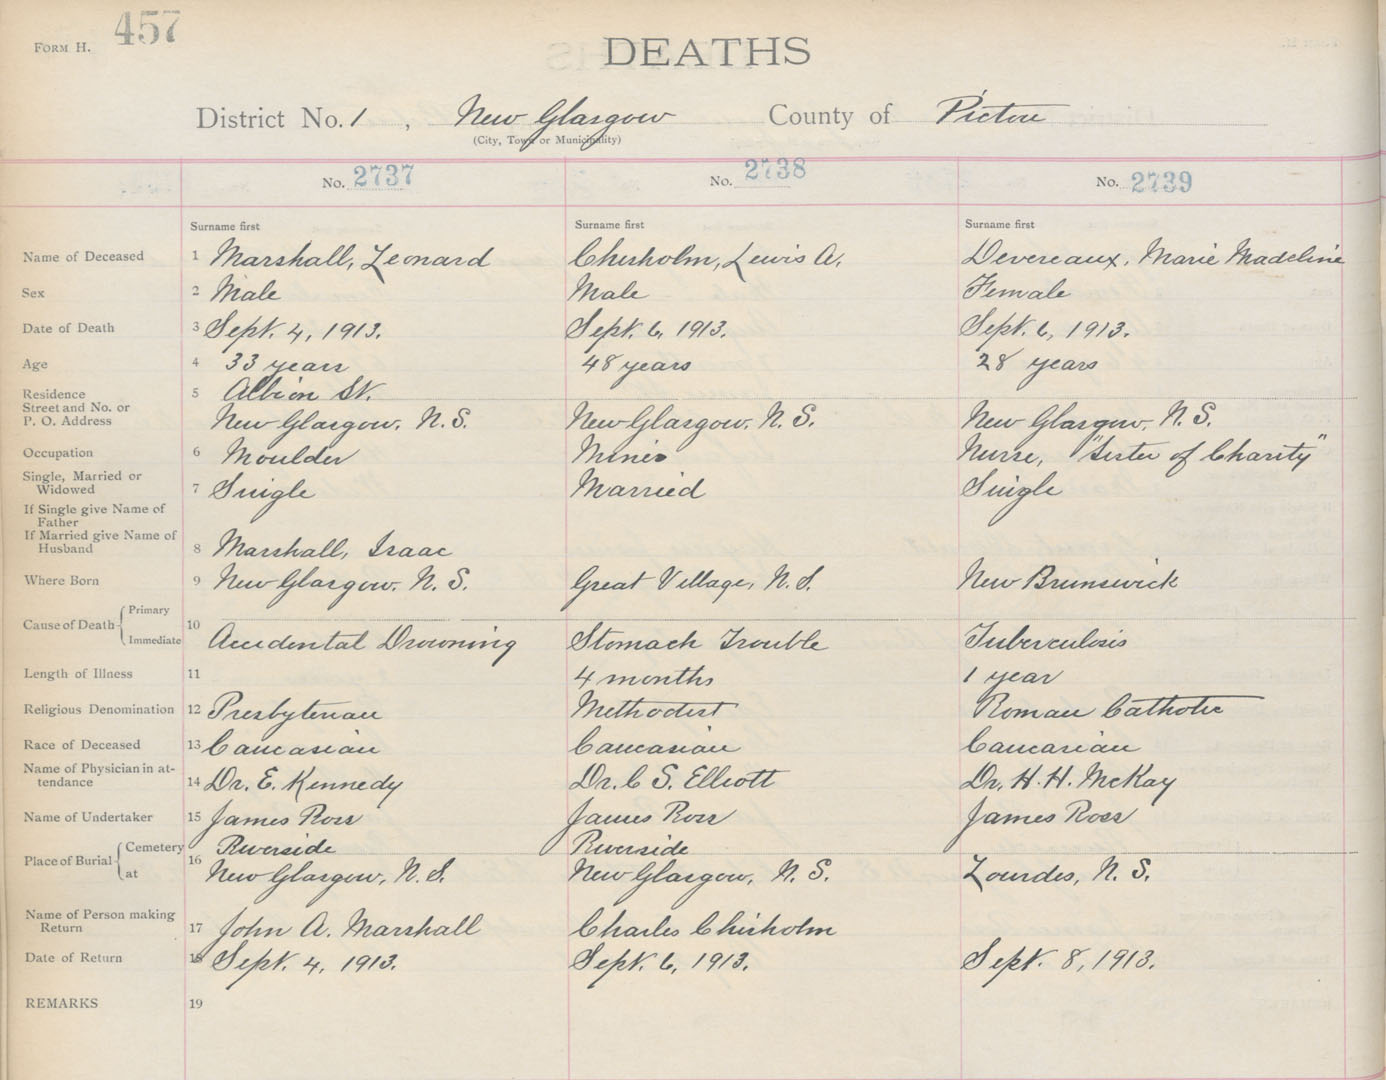 457
FORM H.
DEATHS
District No. 1, New Glasgow County of Pictou
(City, Town or Municipality)
No. 2737 No. 2738 No. 2739
Surname first Surname first Surname first
Name of Deceased 1 Marshall, Leonard Chisholm, Lewis A. Devereaux, Marie Madeline
Sex 2 Male Male Female
Date of Death 3 Sept. 4, 1913. Sept. 6, 1913. Sept. 6, 1913.
Age 4 33 years 48 years 28 years
Residence 5 Albion St.
Street and No. or
P. O. Address New Glasgow, N. S. New Glasgow, N. S. New Glasgow, N. S.
Occupation 6 Moulder Miner Nurse, "Sister of Charity"
Single, Married or
Widowed 7 Single Married Single
If Single give Name of
Father
If Married give Name of
Husband 8 Marshall, Isaac
Where Born 9 New Glasgow, N. S. Great Village, N. S. New Brunswick
Cause of Death Primary
Immediate 10 Accidental Drowning Stomach Trouble Tuberculosis
Length of Illness 11 4 months 1 year
Religious Denomination 12 Presbyterian Methodist Roman Catholic
Race of Deceased 13 Caucasian Caucasian Caucasian
Name of Physician in at-
tendance 14 Dr. E. Kennedy Dr. C S. Elliott Dr. H. H. McKay
Name of Undertaker 15 James Ross James Ross James Ross
Place of Burial Cemetery Riverside Riverside
at 16 New Glasgow, N. S. New Glasgow, N. S. Lourdes, N. S.
Name of Person making
Return 17 John A. Marshall Charles Chisholm
Date of Return 18 Sept. 4, 1913. Sept. 6, 1913. Sept. 8, 1913.
REMARKS 19